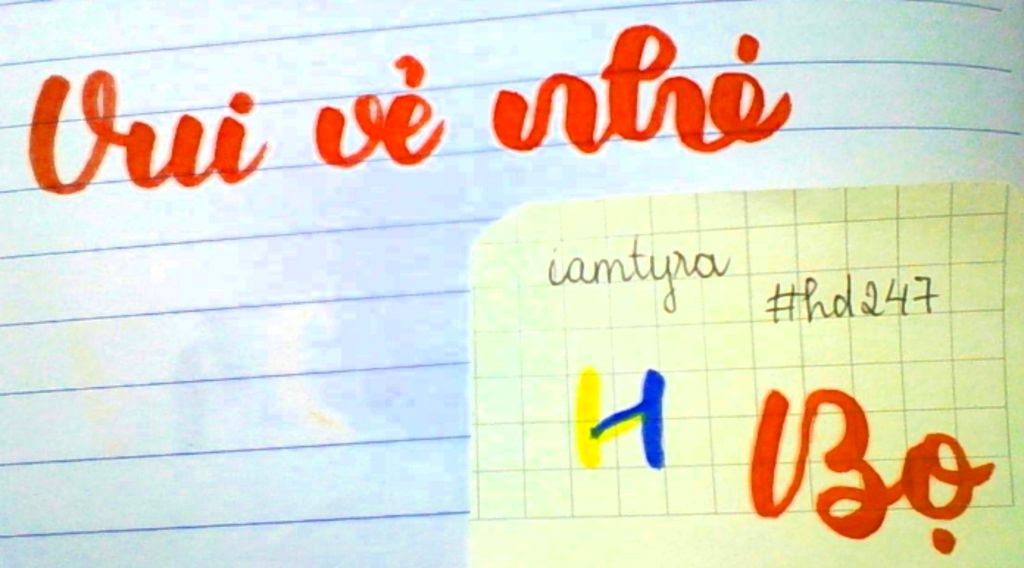 Vui vẻ nhé
iamtyra
#hd247
H
Bọ